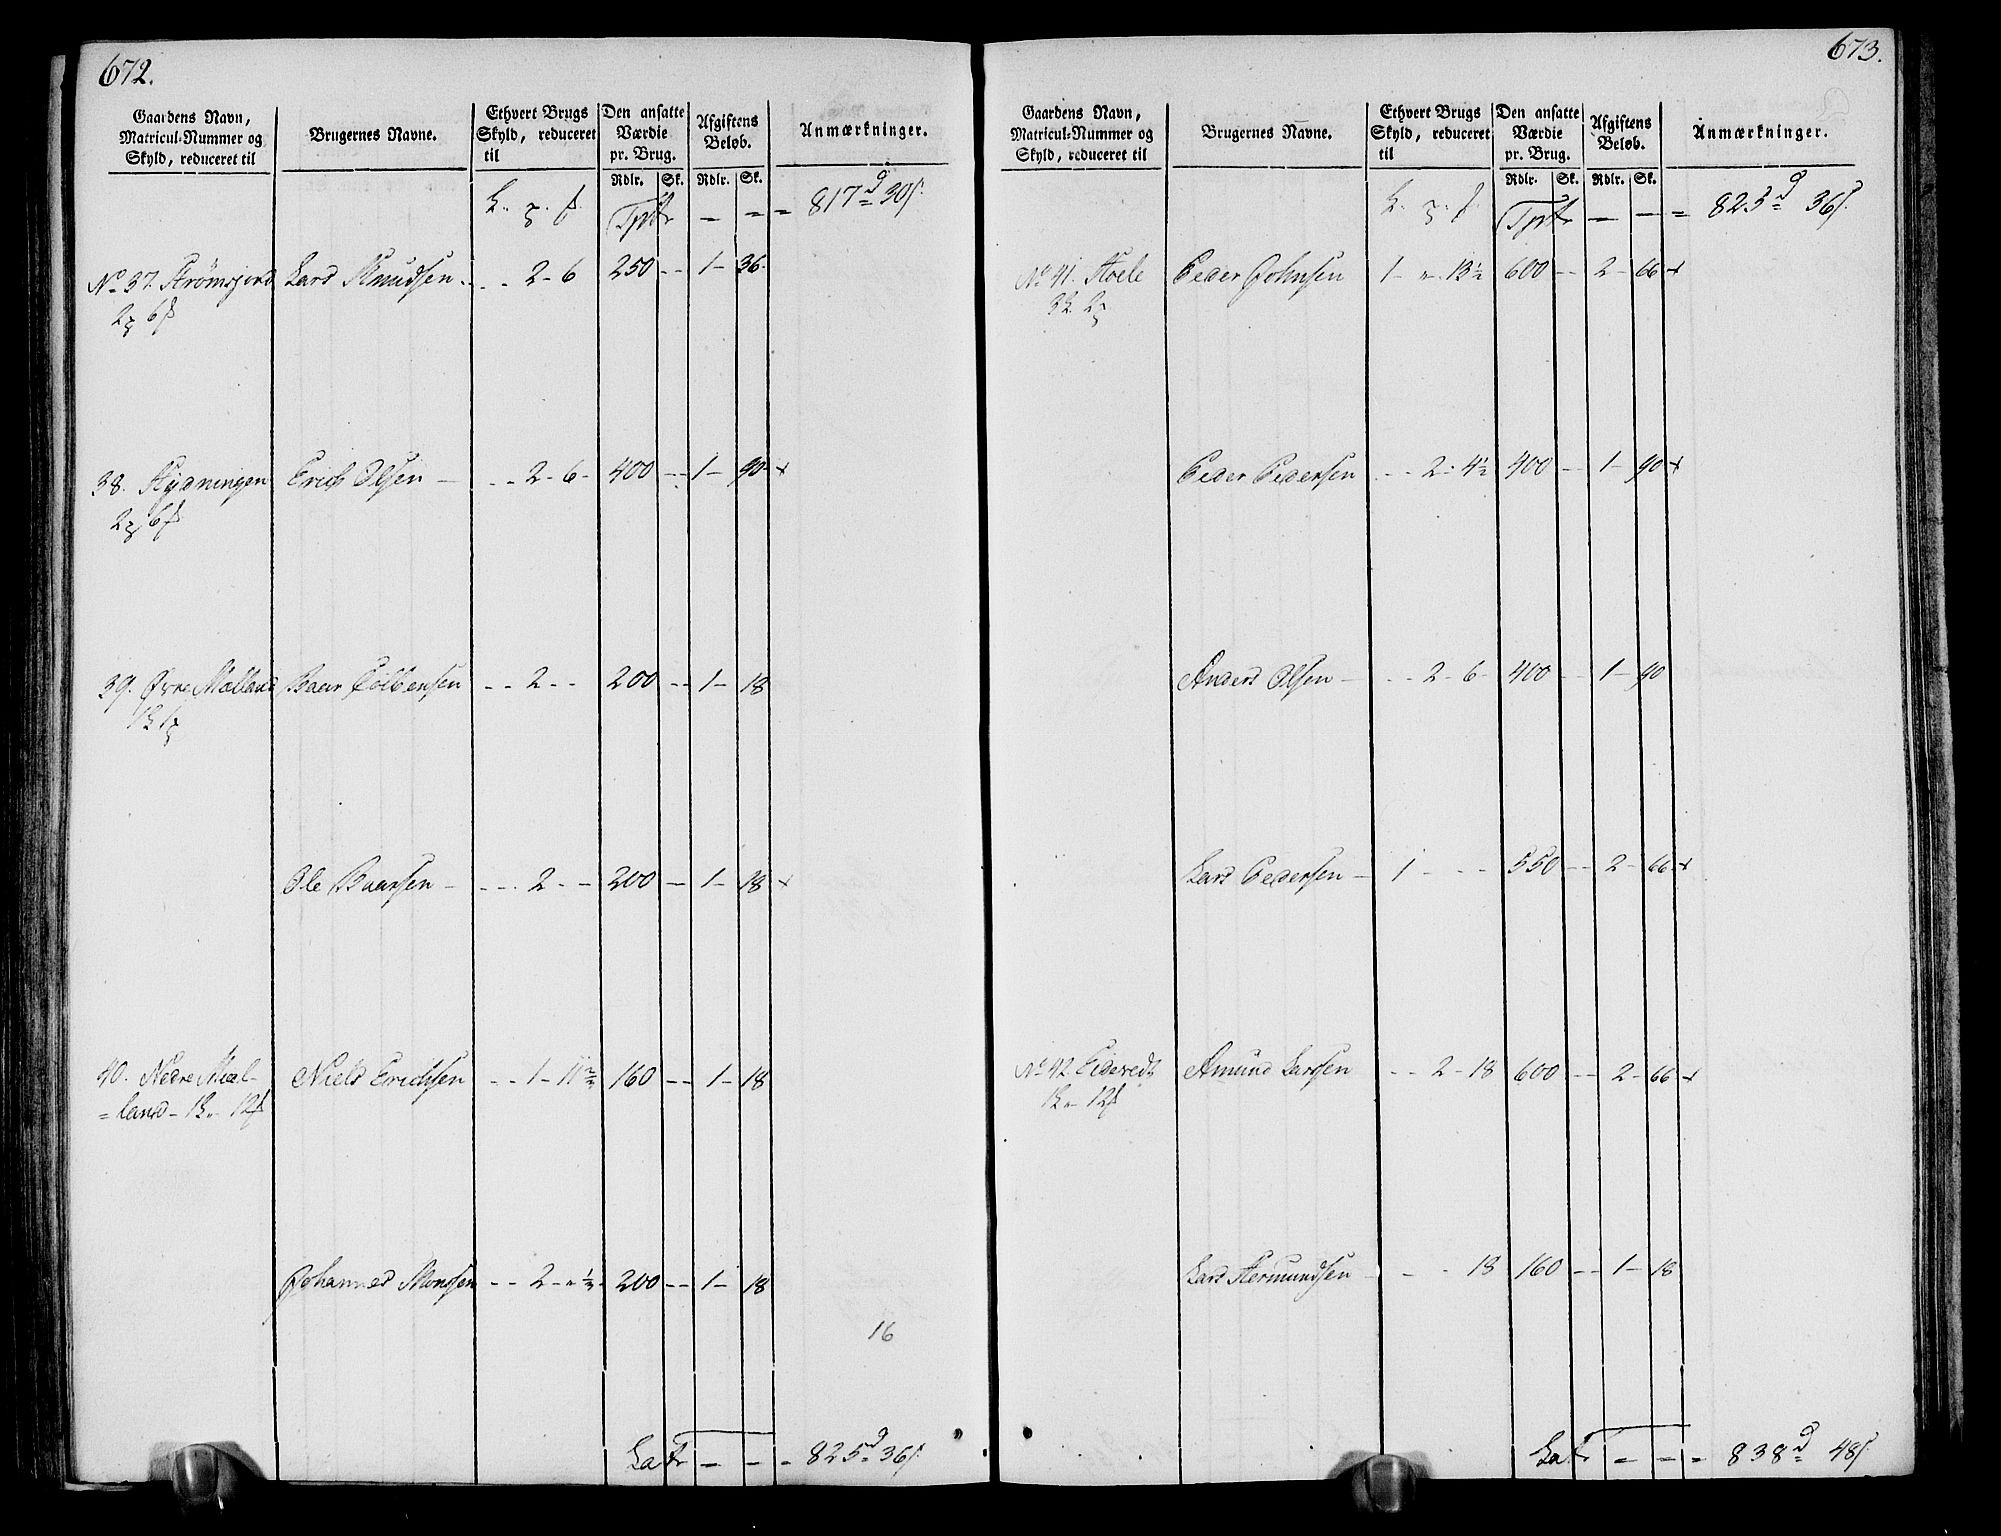 672.
Gaardens Navn, Matricul-Nummer og Skyld, reduceret til | Brugernes Navne. | Ethvert Brugs Skyld, reduceret til | Den ansatte Værdie pr. Brug. | Afgiftens Beløb. | Anmærkninger.
Rdlr. Sk. Rdlr. Sk.
Tpt - - = 817 d 30 s.
No 37. Strømsjord Lars Knudsen - - 2 - 6 250 - - 1 - 36
38. Hydningen Erich Olsen - - - 2 - 6 - 400 - - 1 - 90 +
39. Øvre Mælland Baar Colbensen - - 2 - - 200 - - 1 - 18
Ole Baarsen - - - - 2 - - 200 - 1 - 18 +
40. Nedre Mæl- Niels Erichsen - - 1 - 11½ 160 - - 1 - 18
=land - 1 - 12
Johannes Monsen - - 2 - „ ½ 200 - - 1 - 18
16
Lat - - - 825 d 36 s.
673.
Gaardens Navn, Matricul-Nummer og Skyld, reduceret til | Brugernes Navne. | Ethvert Brugs Skyld, reduceret til | Den ansatte Værdie pr. Brug. | Afgiftens Beløb. | Anmærkninger.
Rdlr. Sk. Rdlr. Sk.
Tpt - - = 825 d 36 s.
No 41. Hoele Peder Johnsen 1 - „ - 13½ 600 - - 2 - 66 +
Peder Pedersen - - 2 - 4½ 400 - - 1 - 90 +
Anders Olsen - - - 2 - 6 - 400 - - 1 - 90
Lars Pedersen - 1 - - - 550 - - 2 - 66 +
No 42 Eideredt Amund Larssen - - 2 - 18 600 - - 2 - 66 +
Lars Hermundsen - - - 18 160 - - 1 - 18
Lat = - = 838 d 48 s